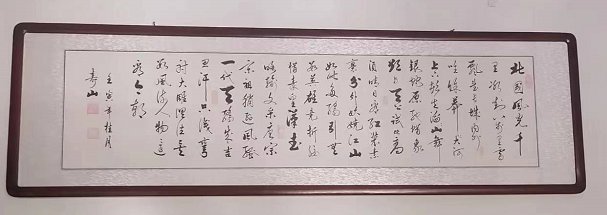 北國風光千
里冰封万里雪
飘望长城内外
惟馀莽莽大河
上下顿失滔滔山舞
银蛇原驰蜡象
欲与天公试比高
须晴日看红装素
裹分外妖娆江山
如此多娇引无
数英雄竞折腰
惜秦皇漢武
略输文采唐宗
宋祖稍逊风骚
一代天骄成吉
思汗只识弯
射大雕俱往矣
数风流人物还
看今朝
壬寅年桂月
寿山